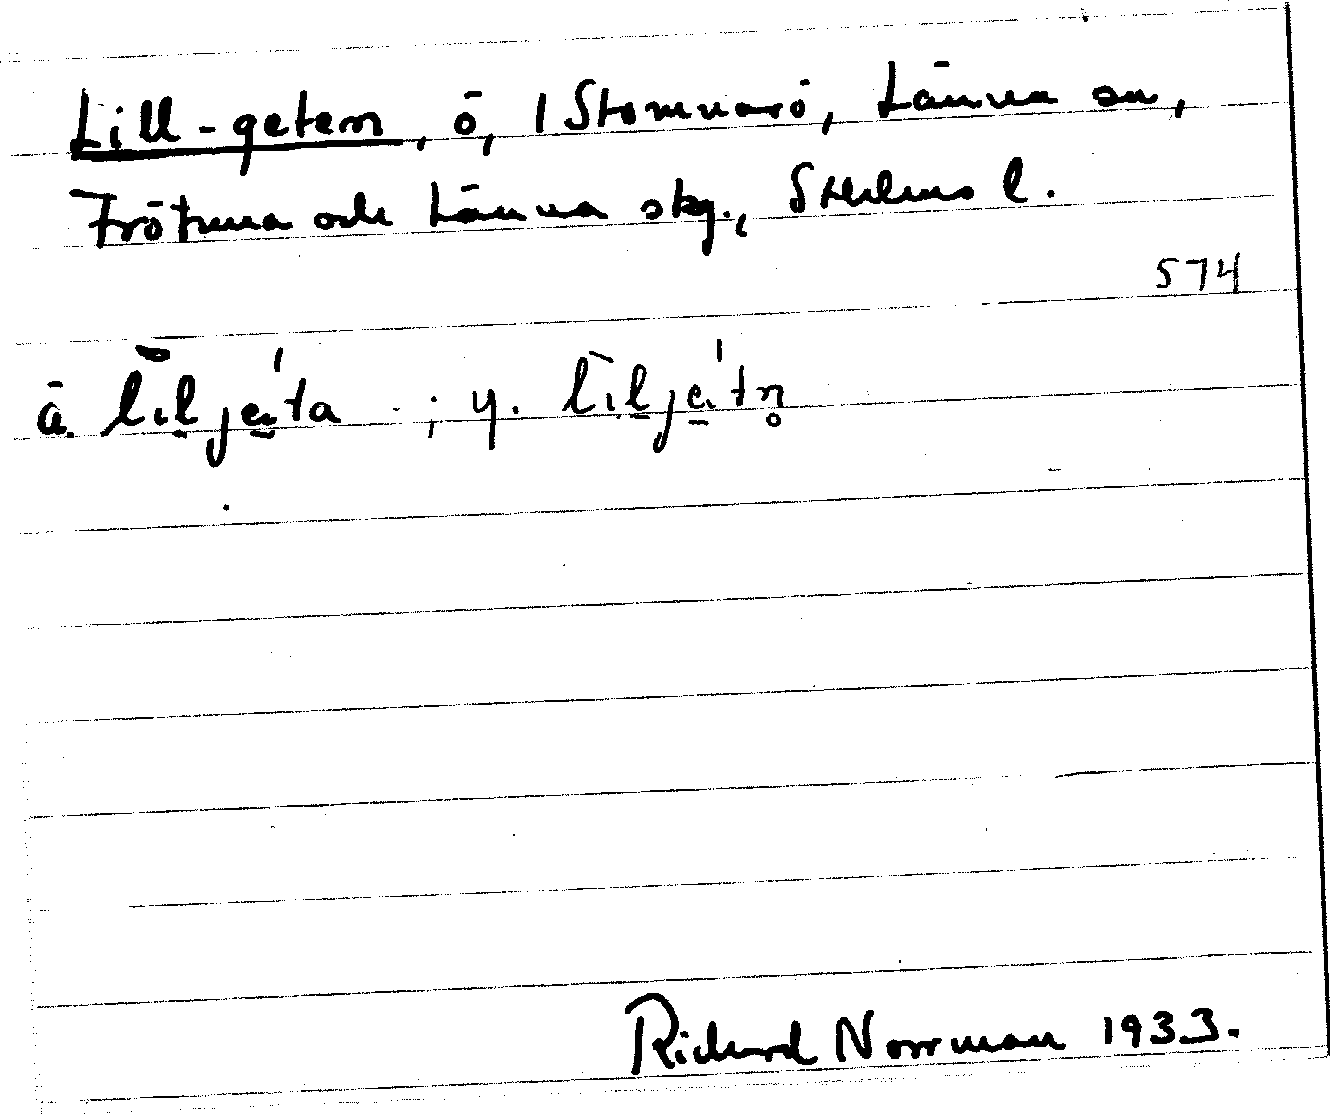 Lill-geten, ö, 1 Stomnarö, Länna sn,
Frötuna och Länna skg., Sthlms l.
574
ä. lìlje̱'ta ; y. lìlje̱'tn̥
Richard Norrman 1933.